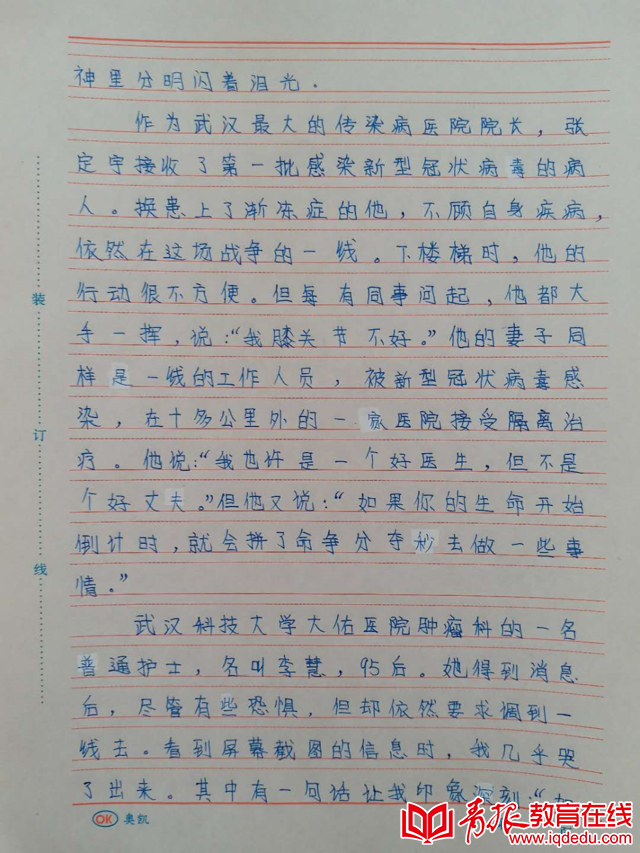 神里分明闪着泪光.
作为武汉最大的传染病医院院长,张
定宇接收了第一批感染新型冠状病毒的病
人。换患上了渐冻症的他,不顾自身疾病,
依然在这场战争的一线。下楼梯时,他的
行动很不方便。但每有同事问起,他都大
手一挥,说:“我膝关节不好。”他的妻子同
样是一线的工作人员,被新型冠状病毒感
染,在十多公里外的一家医院接受隔离治
疗。他说:“我也许是一个好医生,但不是
个好丈夫。”但他又说:“如果你的生命开始
倒计时,就会拼了命争分夺秒去做一些事
情。”
武汉科技大学大佑医院肿瘤科的一名
普通护士,名叫李慧,95后。她得到消息
后,尽管有些恐惧,但却依然要求调到一
线去。看到屏幕截图的信息时,我几乎哭
了出来。其中有一句话让我印象深刻:“如
装
订
线
OK 奥凯
青报教育在线
www.iqdedu.com